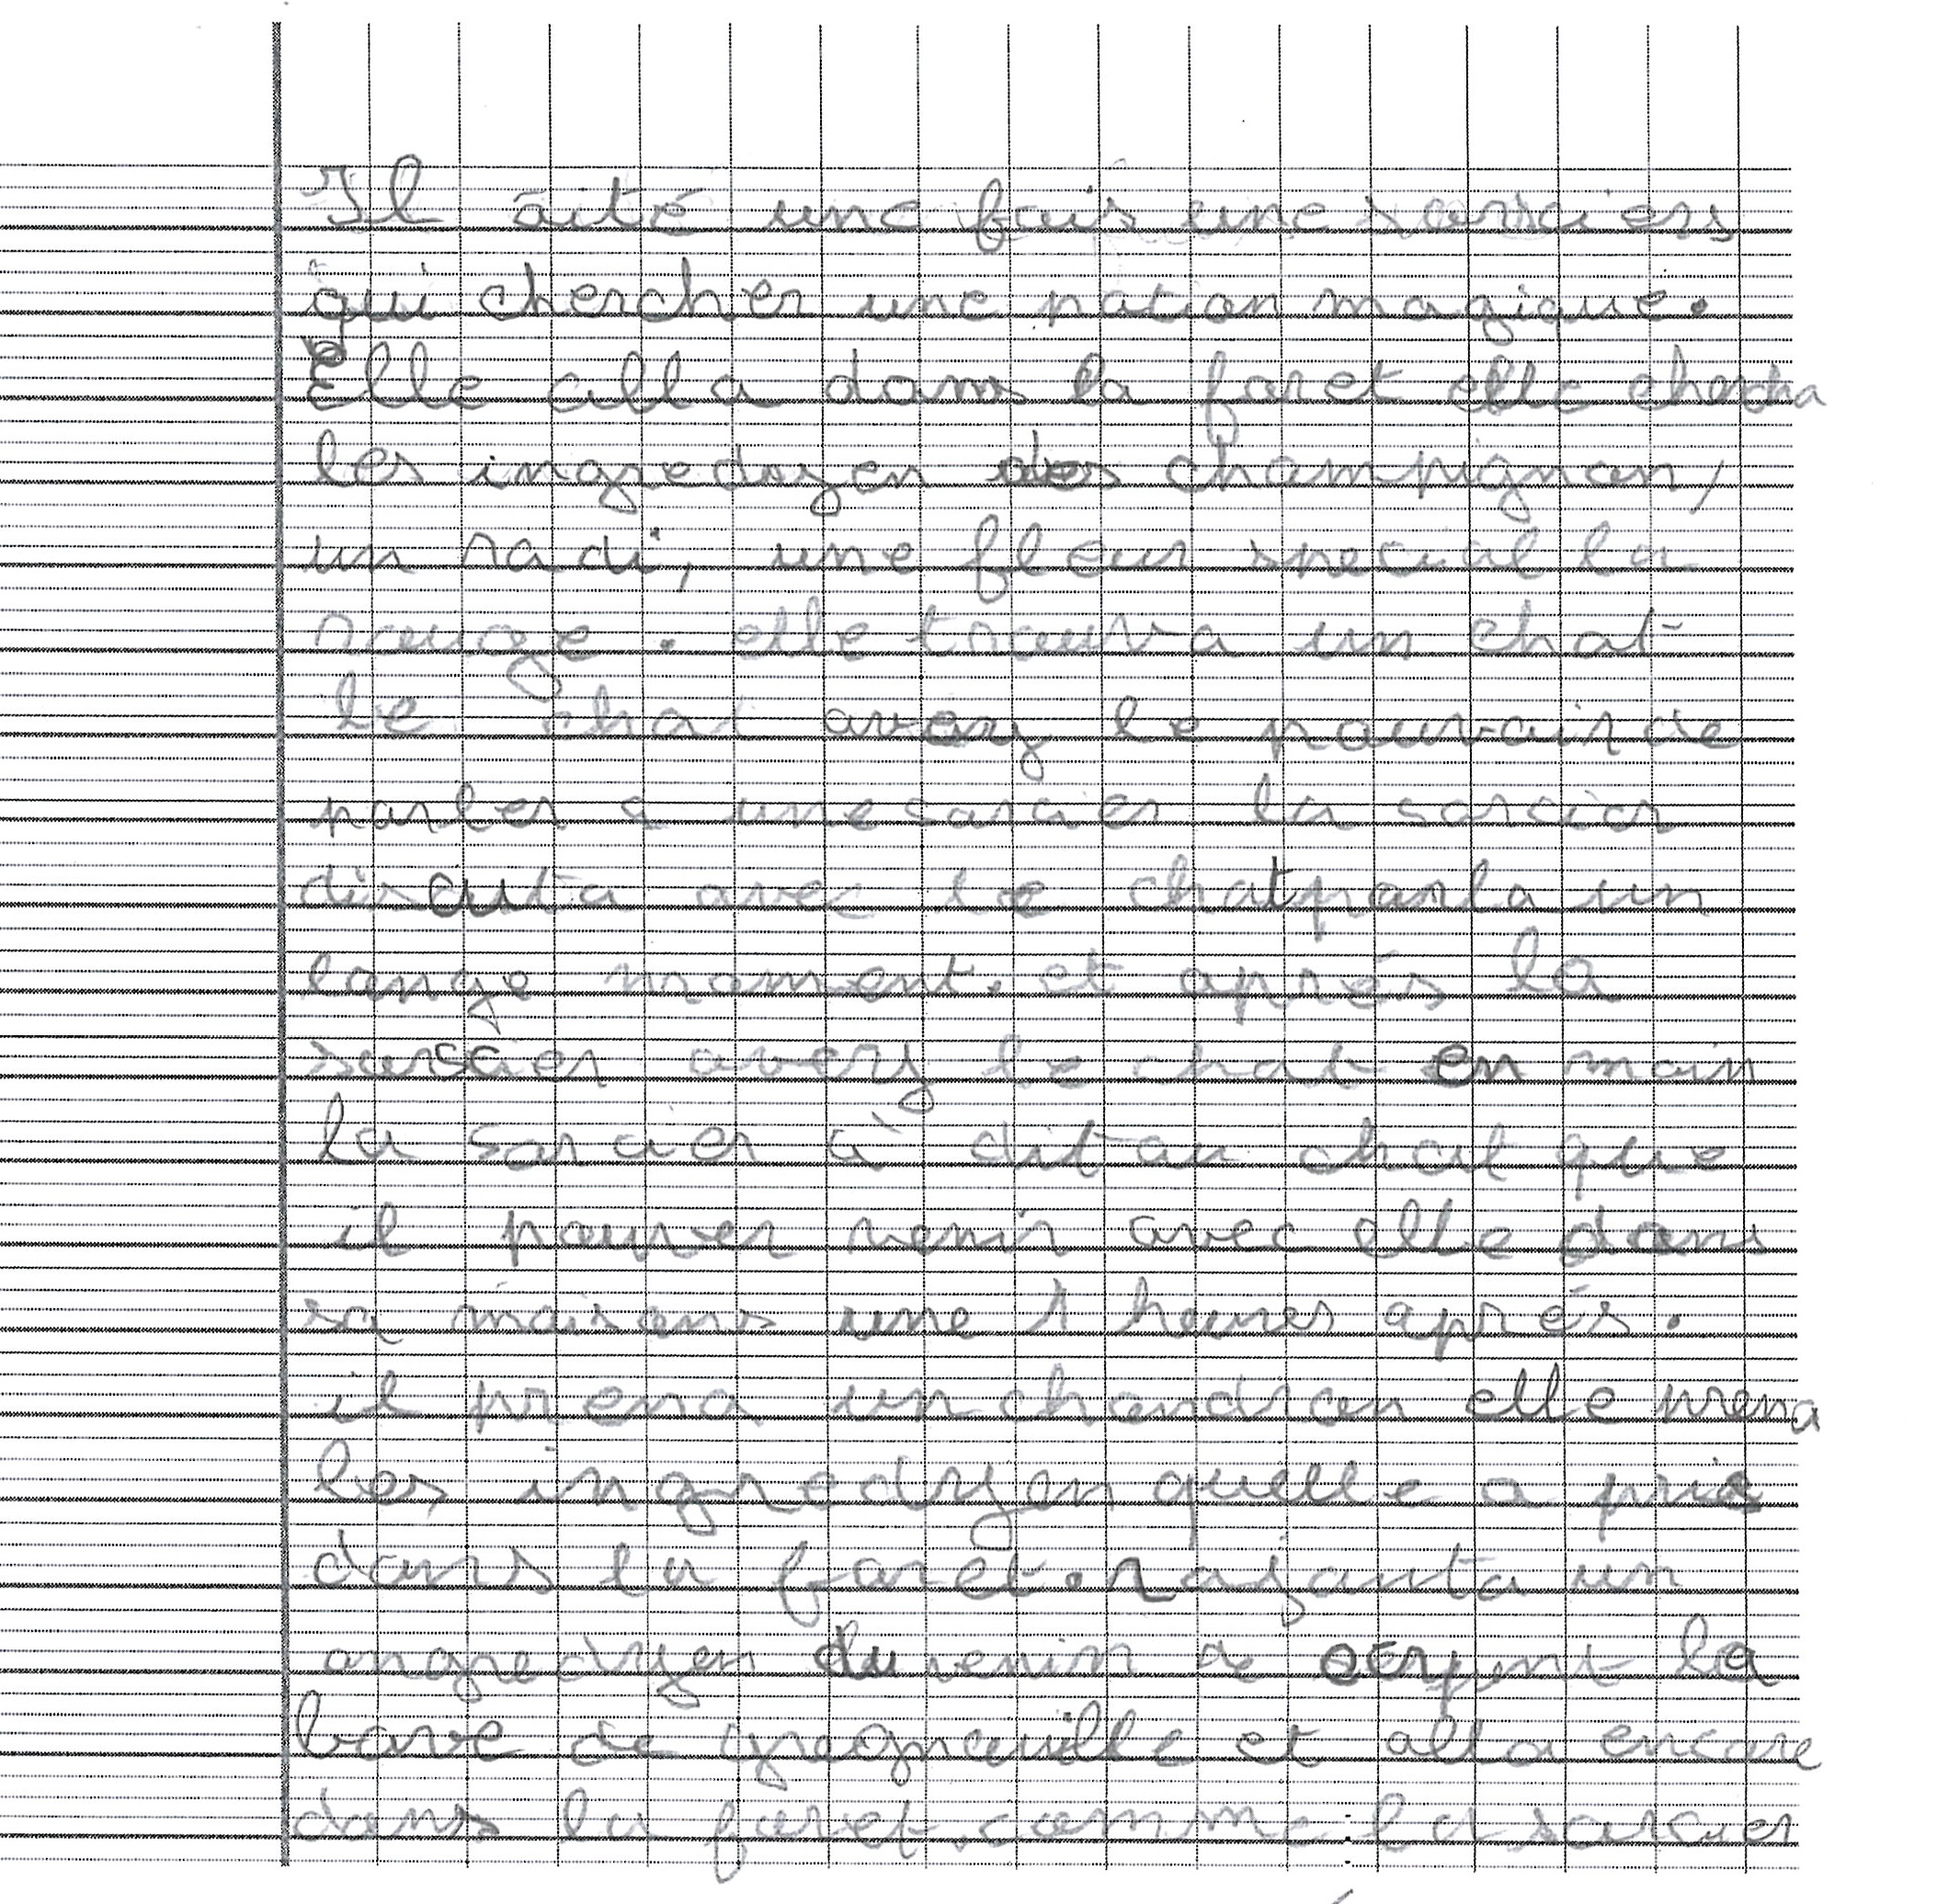 Il aité une fois une sorsciers
qui chercher une potion magique.
Elle alla dans la foret elle chercha
les ingredsyen des champignon,
un radi, une fleur special la
rouoge. elle trouva un chat
le chat avoy le pouvoir de
parler a une sorcier la sorcier
discuta avec le chat parla un
longe moment. et aprés la
sorscier avery le chat en main
la sorcier à dit au chat que
il pouver venir avec elle dans
sa maisons une 1 heures aprés.
il prena un chaudron elle prena
les ingredyen quelle a pris
dans la foret. rajouta un
angredyen du venin de serpent la
bave de gregnouille et alla encore
dans la foret. comme la sorcier